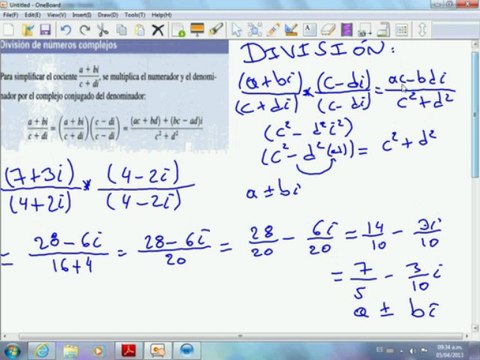 Untitled - OneBoard
División de números complejos
Para simplificar el cociente (a + bi)/(c + di), se multiplica el numerador y el denomi-
nador por el complejo conjugado del denominador:
(a + bi)/(c + di) = ((a + bi)/(c + di))((c - di)/(c - di)) = ((ac + bd) + (bc - ad)i)/(c² + d²)
DIVISIÓN:
(a+bi)/(c+di) * (c-di)/(c-di) = (ac-bdi)/(c²+d²)
(c² - d²i²)
= c² + d²
a ± bi
(7+3i)/(4+2i) * (4-2i)/(4-2i)
= (28-6i)/(16+4) = (28-6i)/20 = 28/20 - 6i/20 = 14/10 - 3i/10
= 7/5 - 3/10 i
a ± bi
ES
09:34 a.m.
05/04/2013